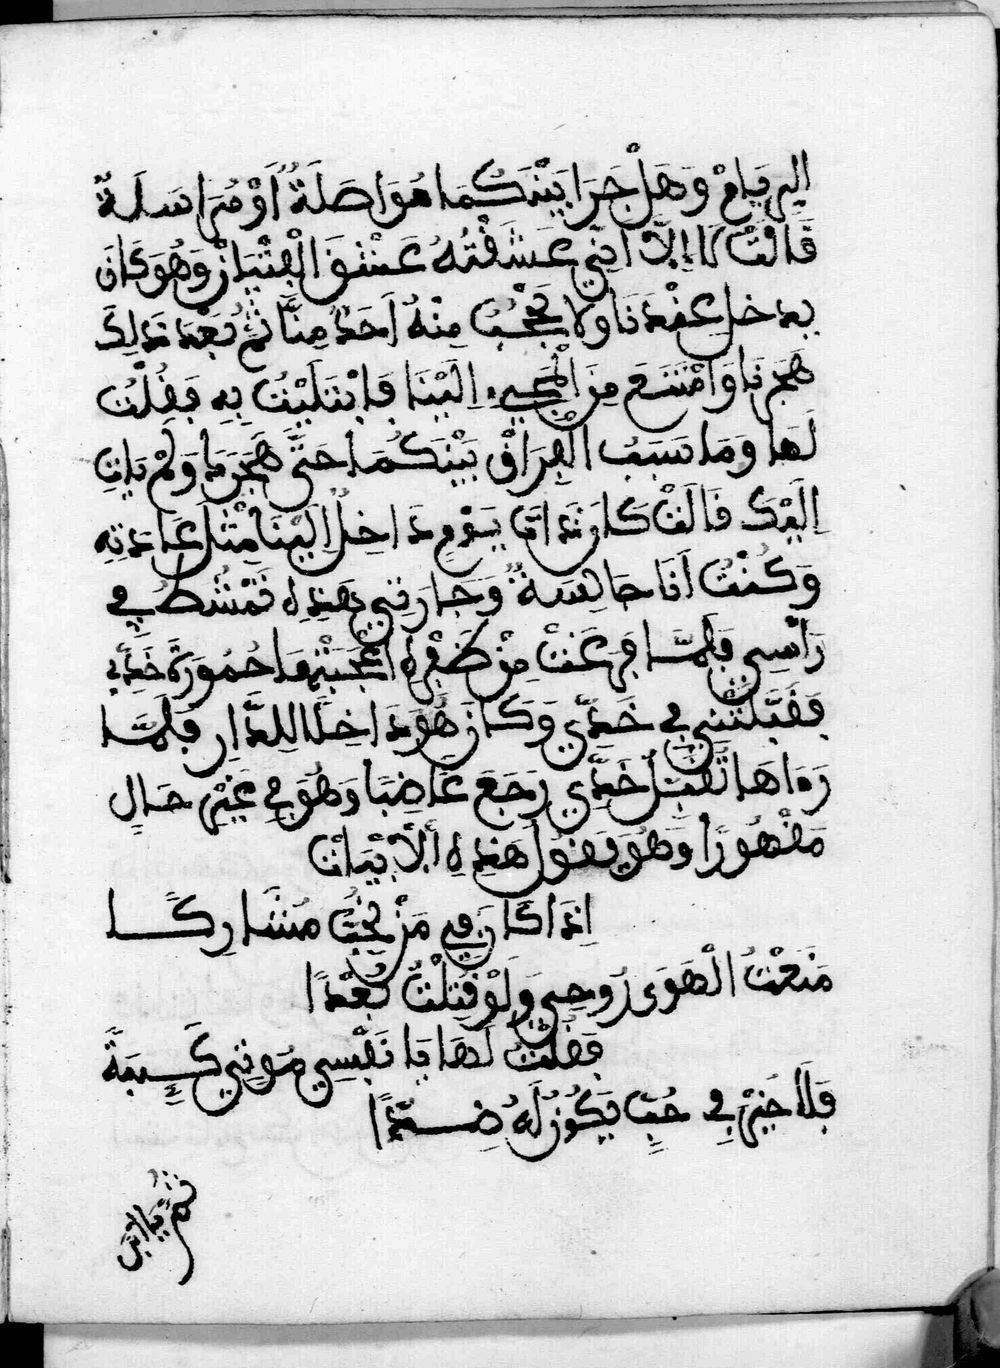 اليه يام وَهَلْ جَرَا بَيْنَكُمَا مُوَاصَلَةٌ أَوْ مُرَاسَلَةٌ
قَالَتْ لَا إِلَّا أَنِّي عَشَقْتُهُ عَشْقَ الْفِتْيَانْ وَهُوَ كَانَ
يدخل عِنْدَنَا وَلَا يُحْجَبُ مِنْهُ أَحَدٌ مِنَّا ثُمَّ بَعْدَ ذَلِكَ
هَجَرَنَا وَامْتَنَعَ مِنَ الْمَجِيءِ إِلَيْنَا فَابْتَلَيْتُ بِهِ فَقُلْتُ
لَهَا وَمَا سَبَبُ الْفِرَاقْ بَيْنَكُمَا حَتَّى هَجَرَكِ وَلَمْ يَاتِ
إِلَيْكِ قَالَتْ كَانَ ذات يَوْمٍ دَاخِلٌ إِلَيْنَا مِثْلَ عَادَتِهِ
وَكُنْتُ أَنَا جَالِسَةٌ وَجَارِيَتِي هَذِهِ تَمْشُطُ فِي
رَأْسِي فَلَمَّا فَرَغَتْ مِنْ ظَفْرِهِ أَعْجَبَتْهَا حُمُورَةُ خَدِّي
فَقَبَّلَتْنِي فِي خَدِّي وَكَانَ هُوَ دَاخِلًا للدَّارِ فَلَمَّا
رَءَاهَا تُقَبِّلُ خَدِّي رَجَعَ غَاضِبًا وَهُوَ فِي غَيْرِ حَالٍ
مَقْهُورًا وَهُوَ يَقُولُ هَذِهِ الْأَبْيَاتْ
إِذَا كَانَ فِي مَنْ نُحِبُّ مُشَارِكًا
مَنَعْتُ الْهَوَى رُوحِي وَلَوْ قُتِلْتُ بُعْدًا
فَقُلْتُ لَهَا يَا نَفْسِي مُوتِي كَرِيمَةً
فَلَا خَيْرَ فِي حُبٍّ يَكُونُ لَهُ ضِدًّا
ثُمَّ يا ابن